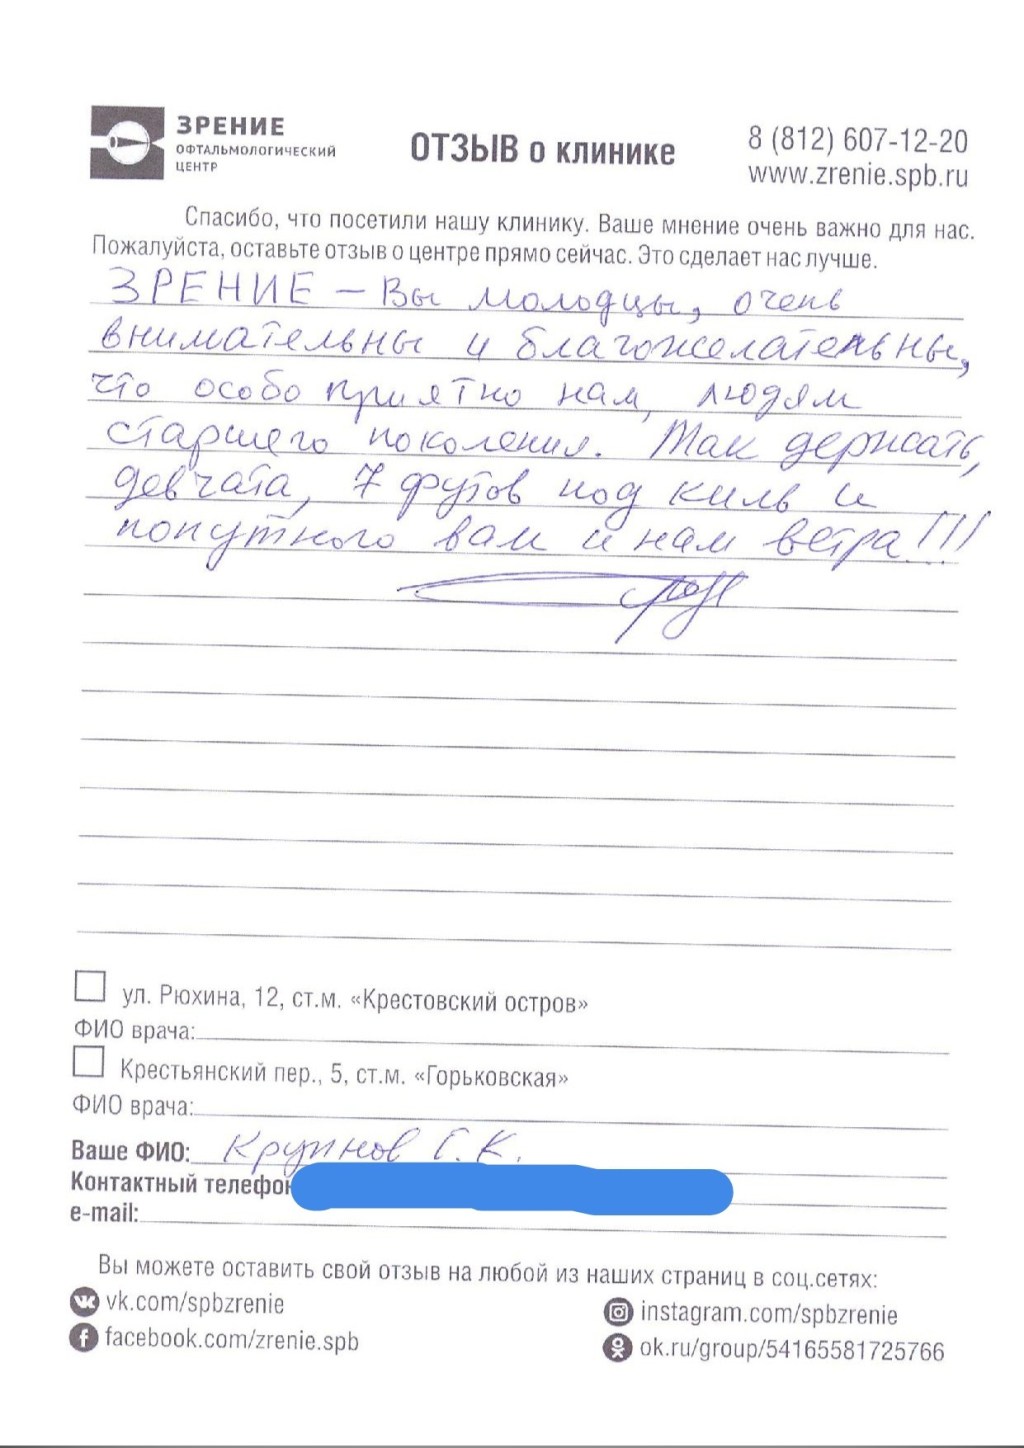 ЗРЕНИЕ
ОФТАЛЬМОЛОГИЧЕСКИЙ
ЦЕНТР
ОТЗЫВ о клинике
8 (812) 607-12-20
www.zrenie.spb.ru
Спасибо, что посетили нашу клинику. Ваше мнение очень важно для нас.
Пожалуйста, оставьте отзыв о центре прямо сейчас. Это сделает нас лучше.
ЗРЕНИЕ – Вы молодцы, очень
внимательны и благожелательны,
что особо приятно нам, людям
старшего поколения. Так держать,
девчата, 7 футов под киль и
попутного вам и нам ветра!!!
ул. Рюхина, 12, ст.м. «Крестовский остров»
ФИО врача:
Крестьянский пер., 5, ст.м. «Горьковская»
ФИО врача:
Ваше ФИО: Крупнов Г. К.
Контактный телефон
e-mail:
Вы можете оставить свой отзыв на любой из наших страниц в соц.сетях:
vk.com/spbzrenie
instagram.com/spbzrenie
facebook.com/zrenie.spb
ok.ru/group/54165581725766